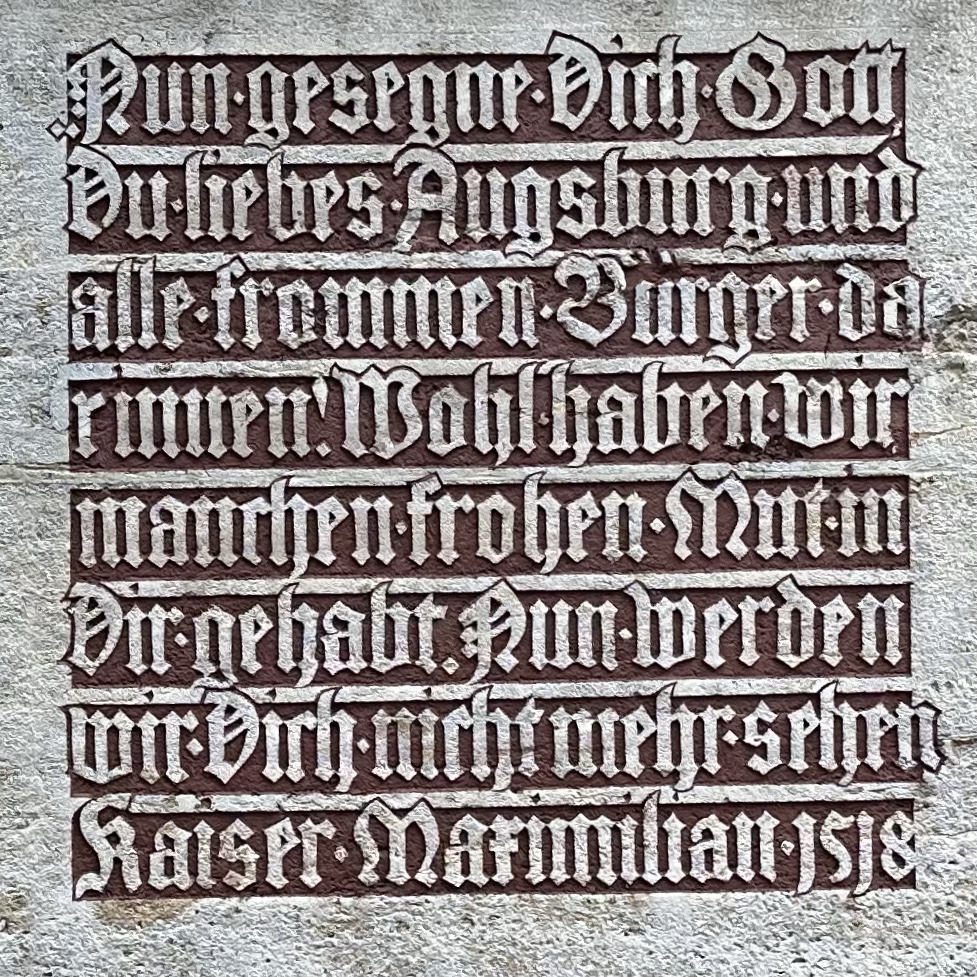 Nun·gesegne·Dich·Gott
Du·liebes·Augsburg·und
alle·frommen·Bürger·da
rinnen! Wohl·haben·wir
manchen·frohen·Mut·in
Dir·gehabt. Nun·werden
wir·Dich·nicht mehr·sehen
Kaiser·Maximilian·1518